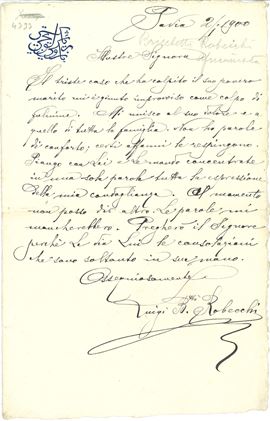 4233
Pavia 2/1900
Illustre Signora
Il triste caso che ha colpito il suo povero
marito mi è giunto improvviso come colpo di
fulmine. Mi unisco al suo dolore e a
quello di tutta la famiglia. Non ho parole
di conforto; certi affanni le respingono.
Piango con Lei e Le mando concentrate
in una sola parola tutta la espressione
della mia condoglianza. Al momento
non posso dir altro. Le parole mi
mancherebbero. Pregherò il Signore
perchè Le dia Lui le consolazioni
che sono soltanto in sue mano.
Ossequiosamente
Luigi B. Robecchi